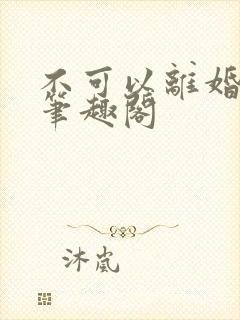 不可以離婚
筆趣閣
沐嵐